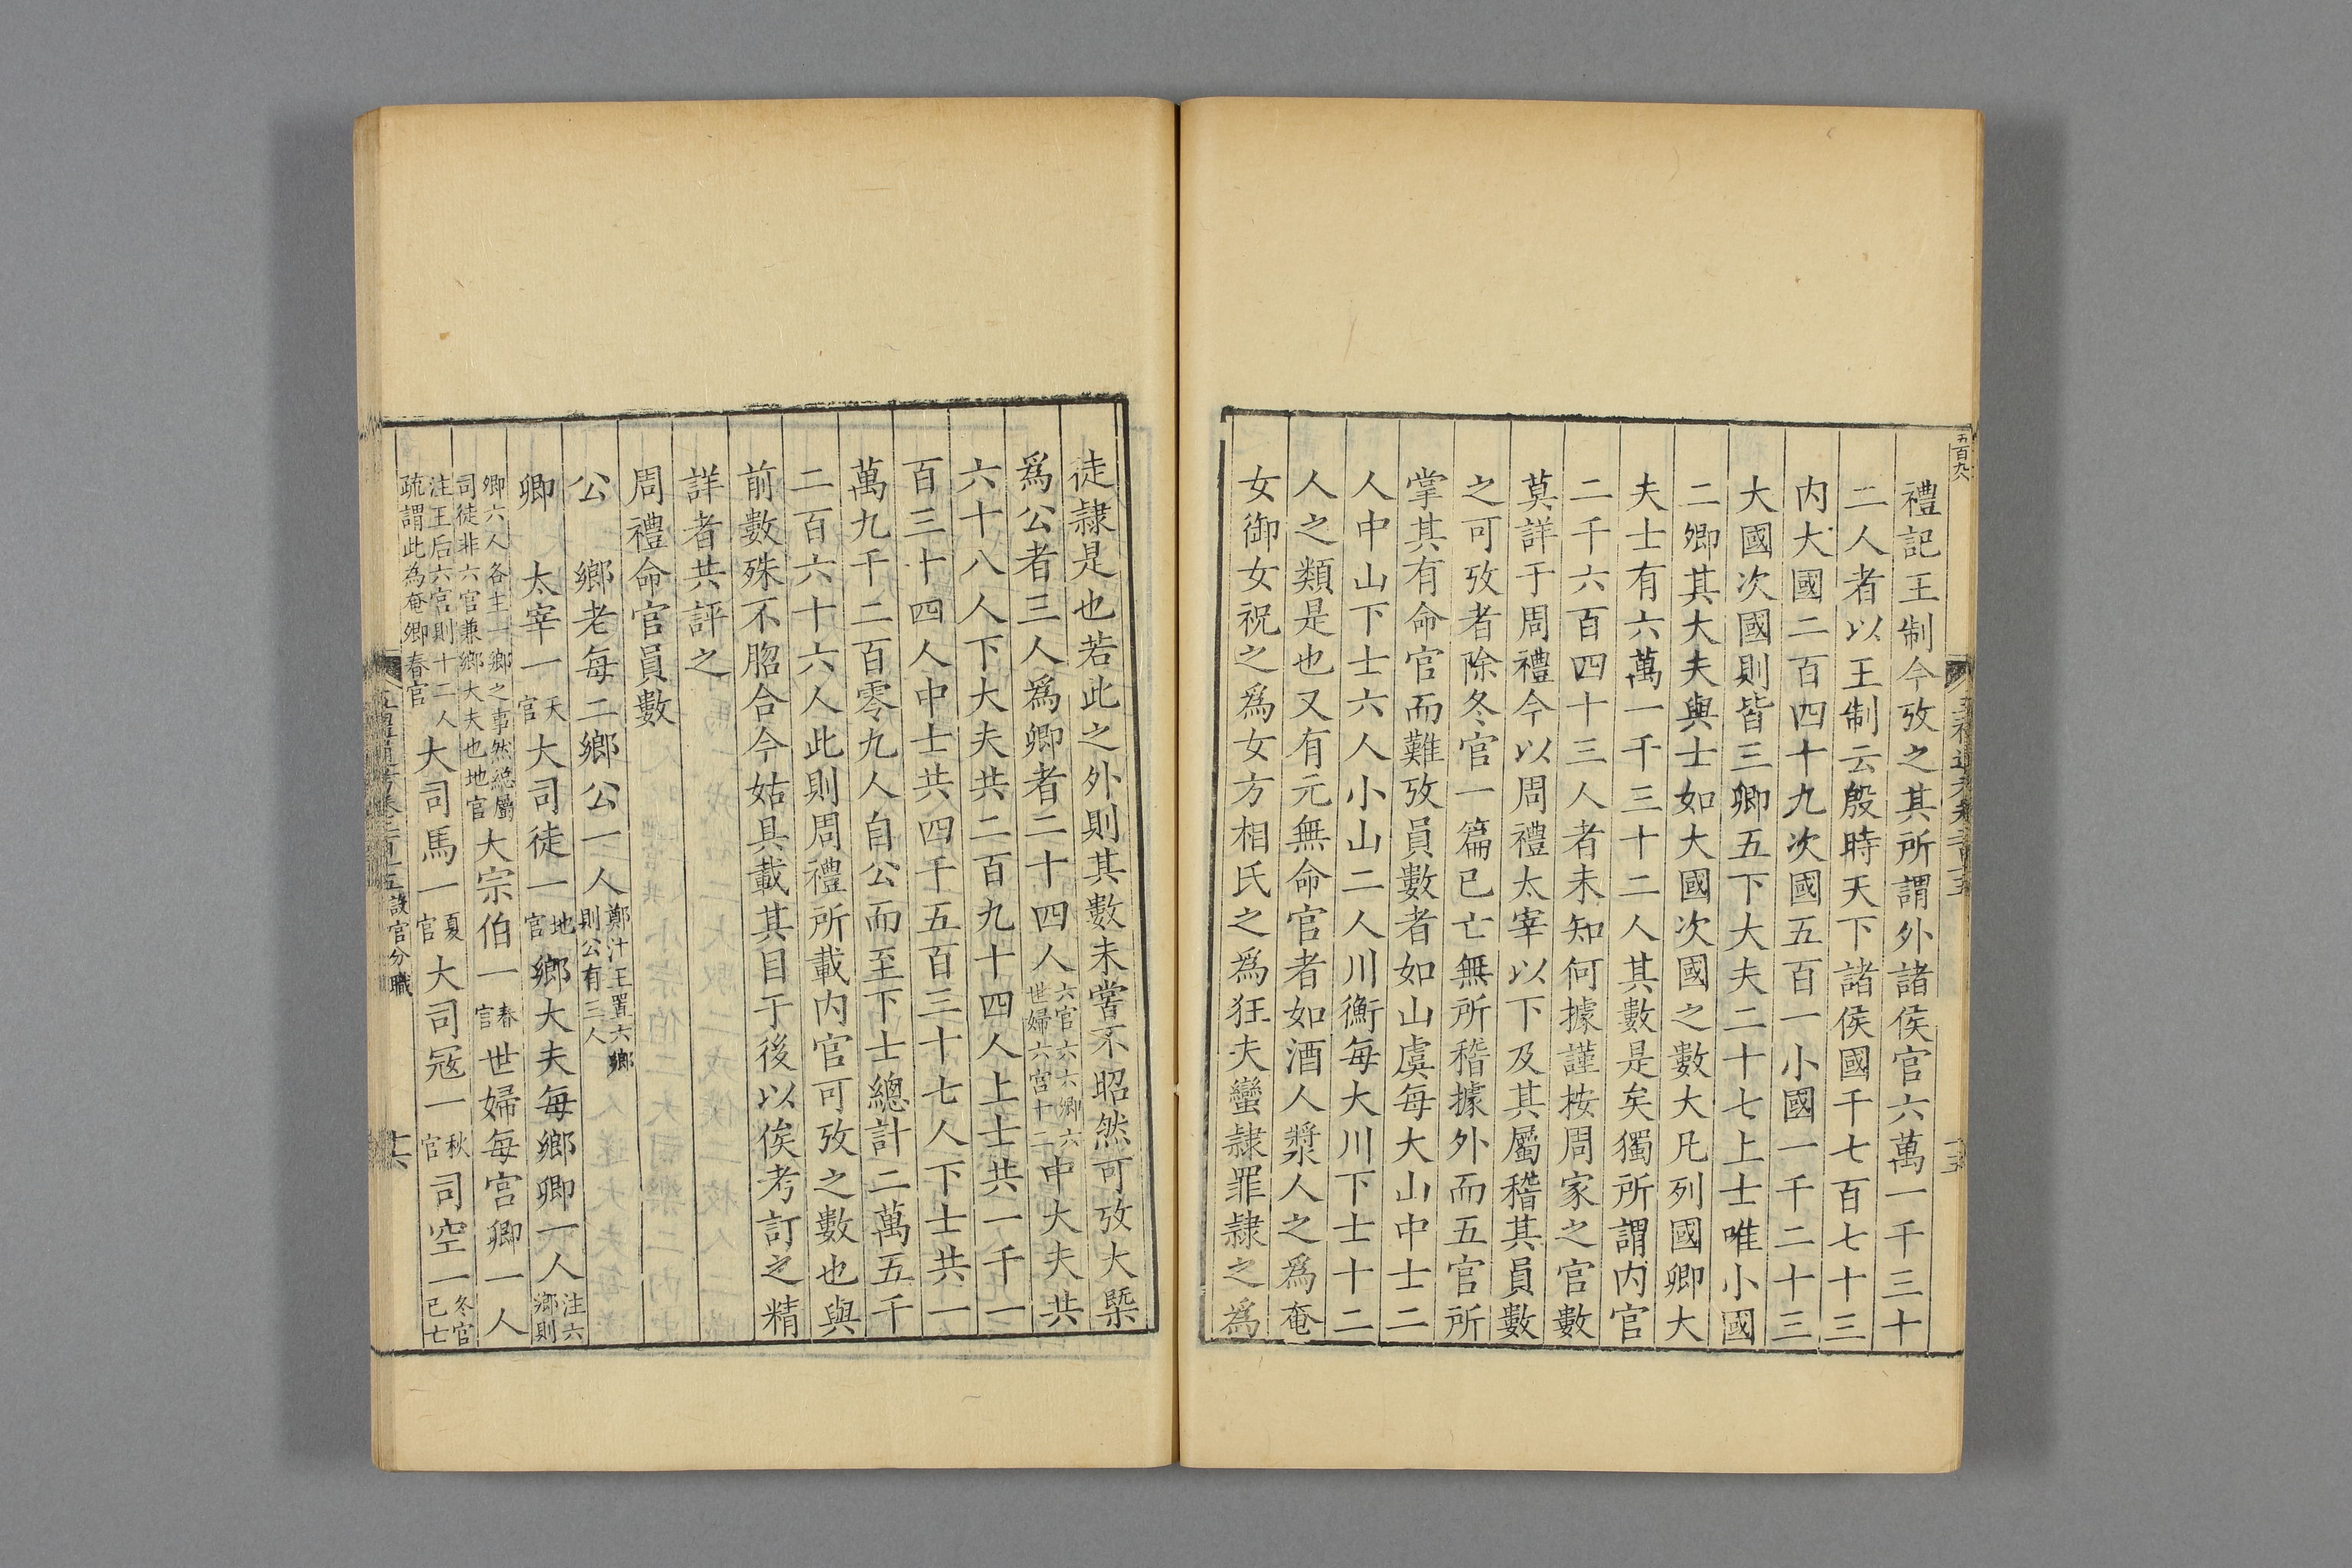 禮記王制今攷之其所謂外諸侯官六萬一千三十
二人者以王制云殷時天下諸侯國千七百七十三
内大國二百四十九次國五百一小國一千二十三
大國次國則皆三卿五下大夫二十七上士唯小國
二卿其大夫與士如大國次國之數大凡列國卿大
夫士有六萬一千三十二人其數是矣獨所謂内官
二千六百四十三人者未知何據謹按周家之官數
莫詳于周禮今以周禮太宰以下及其屬稽其員數
之可攷者除冬官一篇已亡無所稽據外而五官所
掌其有命官而難攷員數者如山虞每大山中士二
人中山下士六人小山二人川衡每大川下士十二
人之類是也又有元無命官者如酒人漿人之為奄
女御女祝之為女方相氏之為狂夫蠻隸罪隸之為
徒隸是也若此之外則其數未嘗不昭然可攷大槩
為公者三人為卿者二十四人六官六六卿六世婦六宮十二中大夫共
六十八人下大夫共二百九十四人上士共一千一
百三十四人中士共四千五百三十七人下士共一
萬九千二百零九人自公而至下士總計二萬五千
二百六十六人此則周禮所載内官可攷之數也與
前數殊不脗合今姑具載其目于後以俟考訂之精
詳者共評之
周禮命官員數
公 鄉老每二鄉公一人鄭汁王置六鄉則公有三人
卿 太宰一天官大司徒一地官鄉大夫每鄉卿一人注六鄉則
卿六人各主一鄉之事然總屬司徒非六官兼鄉大夫也地官大宗伯一春官世婦每宮卿一人
注王后六宮則十二人疏謂此為奄卿春官大司馬一夏官大司寇一秋官司空一冬官已亡
設官分職